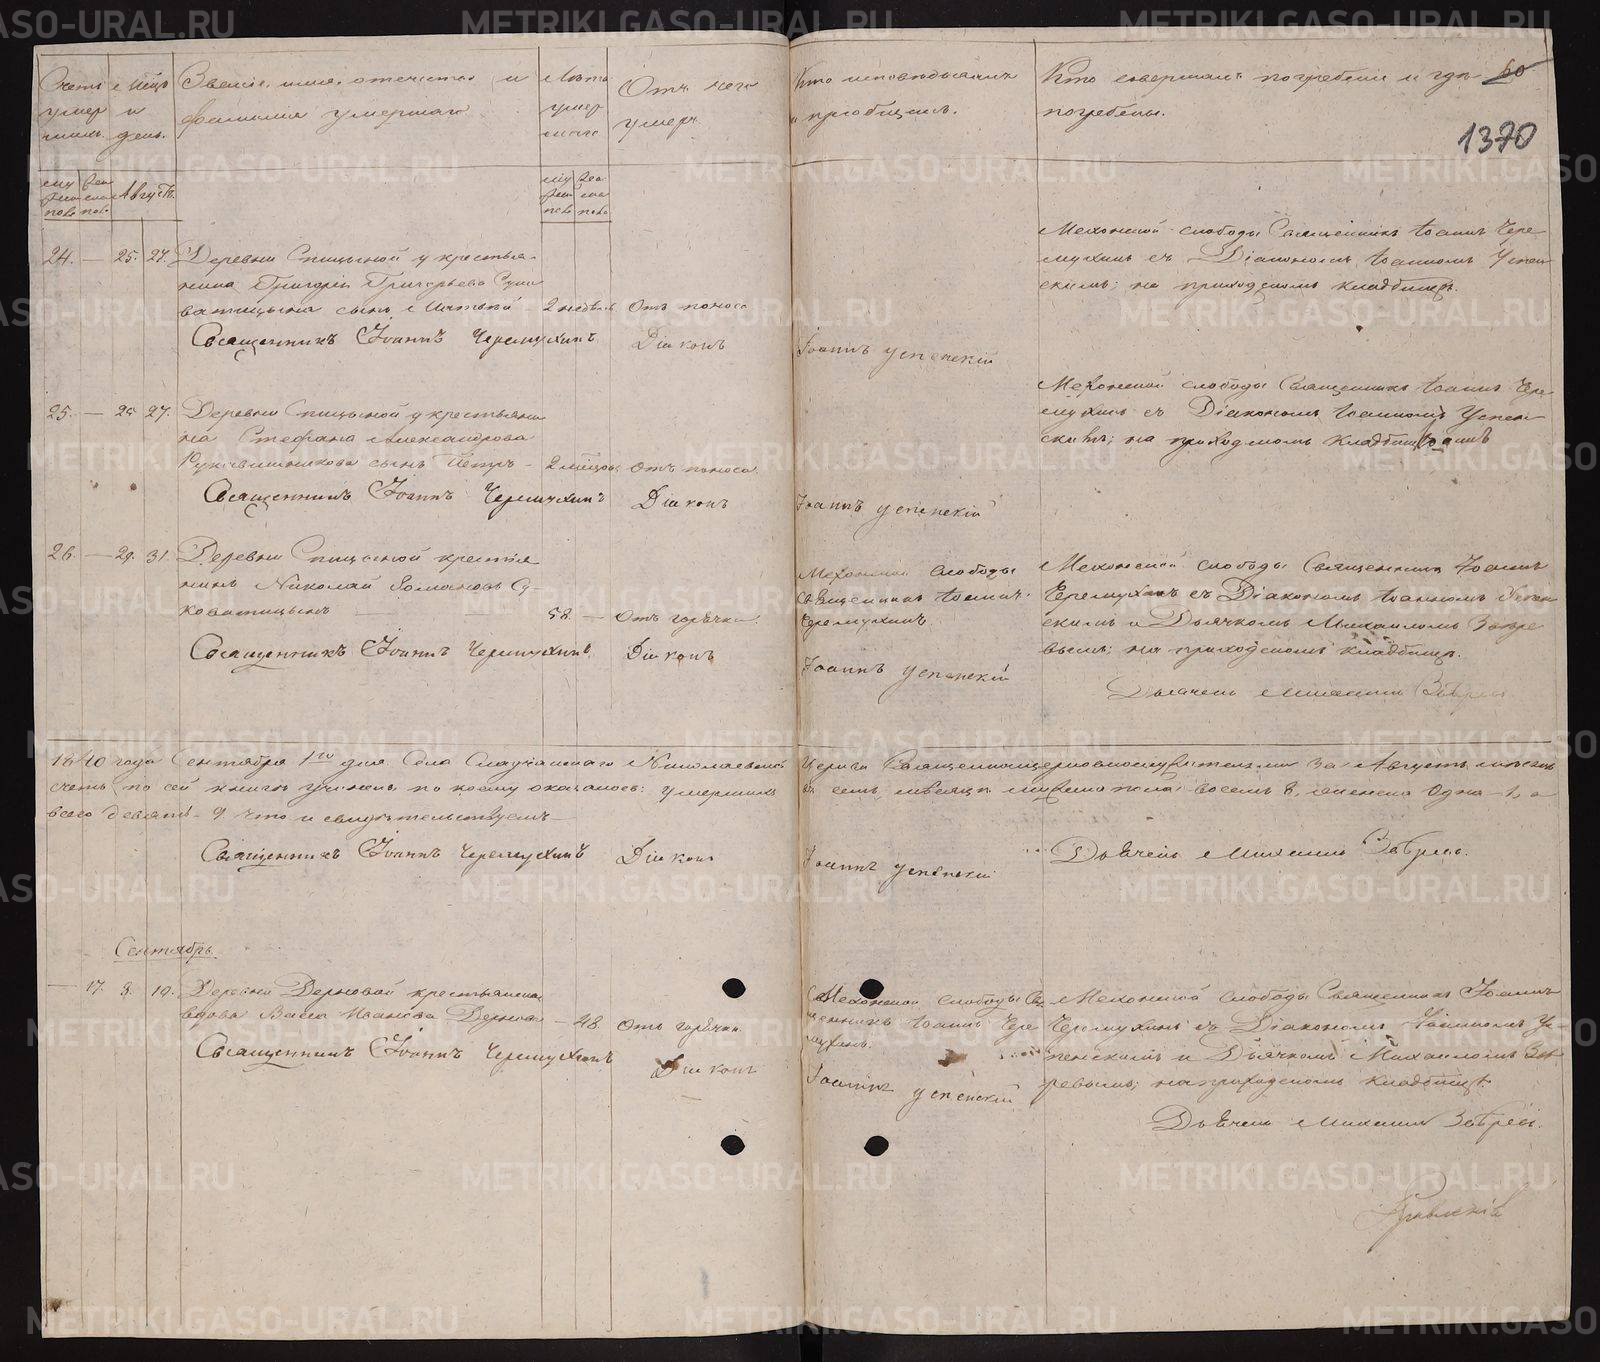 Счетъ умер шихъ.
Мцъ и день.
Званіе, имя, отечество и фамилія умершаго
Лѣта умер шаго
Отъ чего умеръ.
Кто исповѣдывалъ и пріобщалъ.
Кто совершалъ погребеніе и гдѣ погребены.
60
1370
Августъ.
24. — 25. 27. Деревни Спицыной у крестья-
нина Григорія Григорьева
сынъ Матвѣй — 2 недѣль Отъ поноса
Мехонской слободы Священникъ Іоаннъ Чере-
мухинъ съ Діакономъ Іоанномъ Успен-
скимъ; на приходскомъ кладбищѣ.
Священникъ Іоаннъ Черемухинъ Діаконъ Іоаннъ Успенскій
25. — 25 27. Деревни Спицыной у крестьяни-
на Стефана Александрова
Рукавишникова сынъ Петръ — 2 мѣсяц. Отъ поноса
Мехонской слободы Священникъ Іоаннъ Чере-
мухинъ съ Діакономъ Іоанномъ Успен-
скимъ; на приходскомъ кладбищѣ
Священникъ Іоаннъ Черемухинъ Діаконъ Іоаннъ Успенскій
26. — 29. 31. Деревни Спицыной крестья-
нинъ Николай Романовъ Су-
коватицынъ 58. — Отъ горячки.
Мехонской слободы
Священникъ Іоаннъ
Черемухинъ.
Мехонской слободы Священникъ Іоаннъ
Черемухинъ съ Діакономъ Іоанномъ Успен-
скимъ и Дьячкомъ Михаиломъ Забре-
вымъ; на приходскомъ кладбищѣ.
Священникъ Іоаннъ Черемухинъ. Діаконъ Іоаннъ Успенскій
Дьячекъ Михаилъ
1840 года Сентября 1го дня. Села Николаевской Церкви Священноцерковнослужителями за Августъ мѣсяцъ
счетъ по сей книгѣ учиненъ по коему оказалось: умершихъ мужеска пола восемь 8, женска одна 1, а
всего девять 9 что и свидѣтельствуемъ
Священникъ Іоаннъ Черемухинъ Діаконъ Іоаннъ Успенскій Дьячекъ Михаилъ
Сентябрь.
— 17. 8. 10. Деревни Дерновой крестьянская
вдова Васса Иванова Дернова — 48. Отъ горячки
Мехонской слободы Свя-
щенникъ Іоаннъ Чере-
мухинъ.
Мехонской слободы Священникъ Іоаннъ
Черемухинъ съ Діакономъ Іоанномъ Ус-
пенскимъ и Дьячкомъ Михаиломъ Заб-
ревымъ; на приходскомъ кладбищѣ.
Священникъ Іоаннъ Черемухинъ Діаконъ Іоаннъ Успенскій
Дьячекъ Михаилъ
METRIKI.GASO-URAL.RU